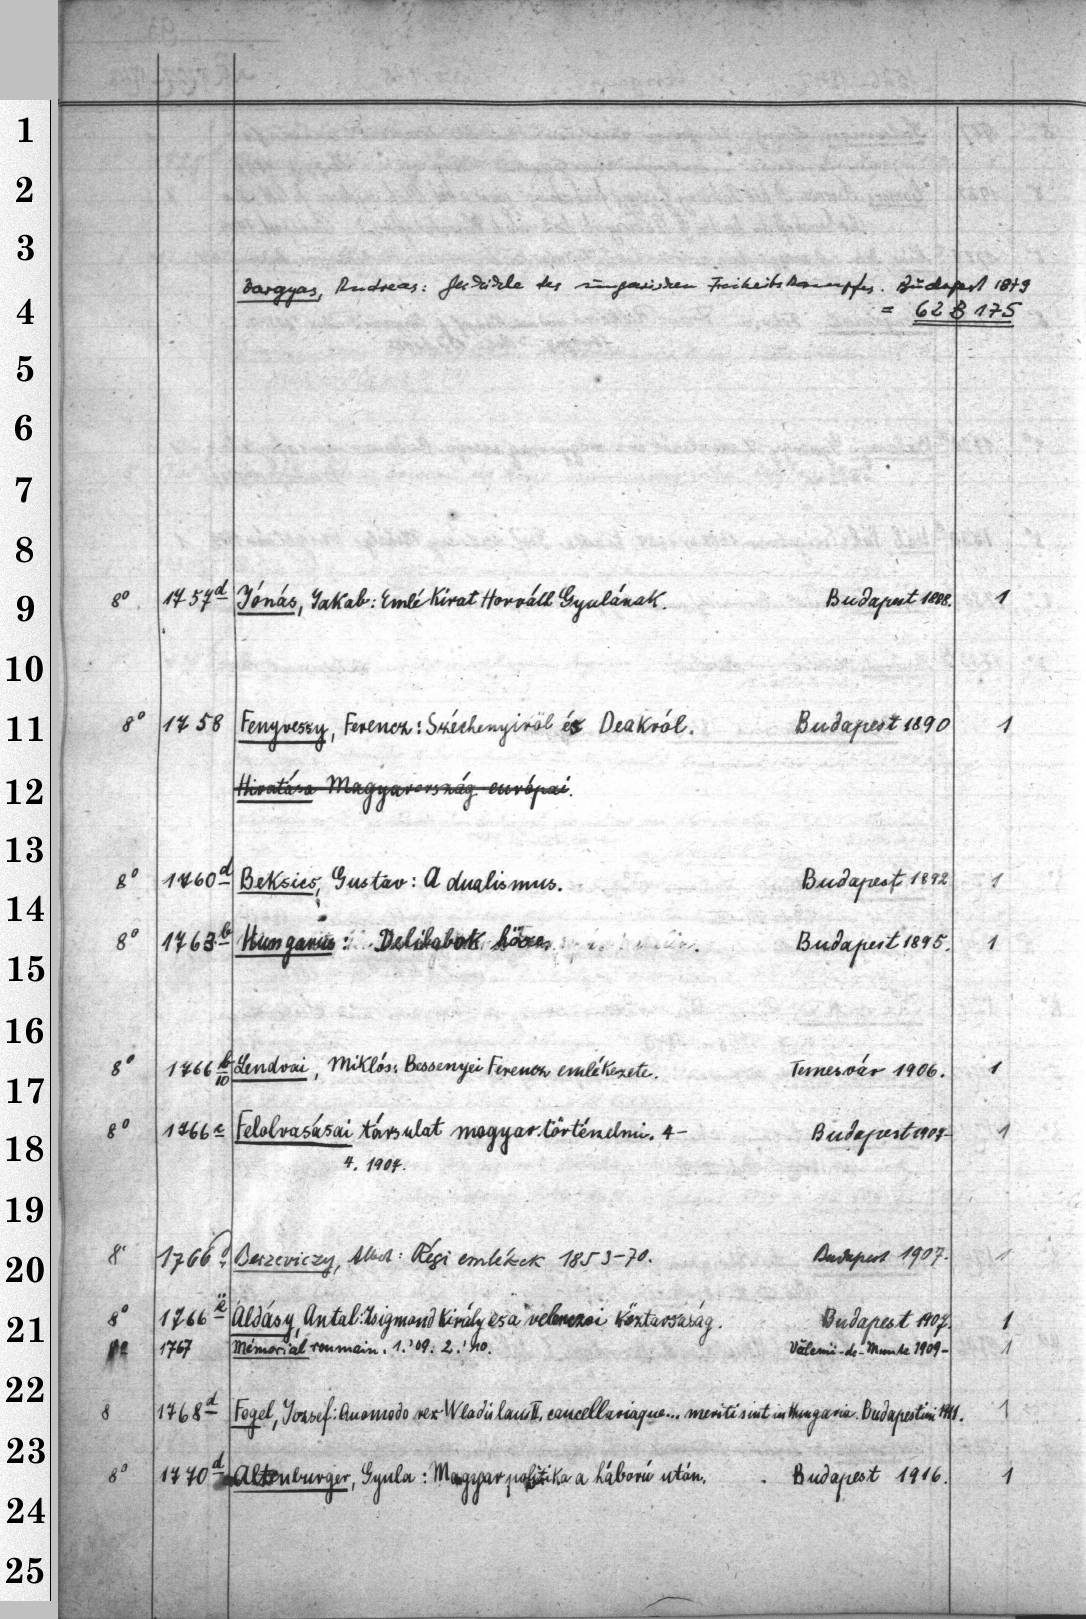 Dargyas, Andreas: Geschichte des ungarischen Freiheitskampfes. Budapest 1879
= 62 B 175
8° 1757d Jónás, Jakab: Emlékirat Horváth Gyulának. Budapest 1888. 1
8° 1758 Fenyvessy, Ferencz: Széchenyiről és Deakról. Budapest 1890 1
Hivatása Magyarország európai.
8° 1760d Beksics, Gustav: A dualismus. Budapest 1892 1
8° 1763b Hungarus: Delibabok hőse. Budapest 1895. 1
8° 1766b/10 Lendvai, Miklós: Bessenyei Ferencz emlékezete. Temesvár 1906. 1
8° 1766c Felolvasásai társulat magyar történelmi. 4- Budapest 1907- 1
4. 1907.
8° 1766 Berzeviczy, Albert: Régi emlékek 1853-70. Budapest 1907. 1
8° 1766 Áldásy, Antal: Zsigmond király és a velenczei köztarsaság. Budapest 1907. 1
1767 Mémorial roumain. 1.'09. 2.'10. Vălenii-de-Munte 1909- 1
8 1768d Fogel, Jozsef: Quomodo rex Wladislaus II, cancellariaque... meriti sint in Hungaria. Budapestini 1911. 1
8° 1770d Altenburger, Gyula: Magyar politika a háború után. Budapest 1916. 1
1
2
3
4
5
6
7
8
9
10
11
12
13
14
15
16
17
18
19
20
21
22
23
24
25